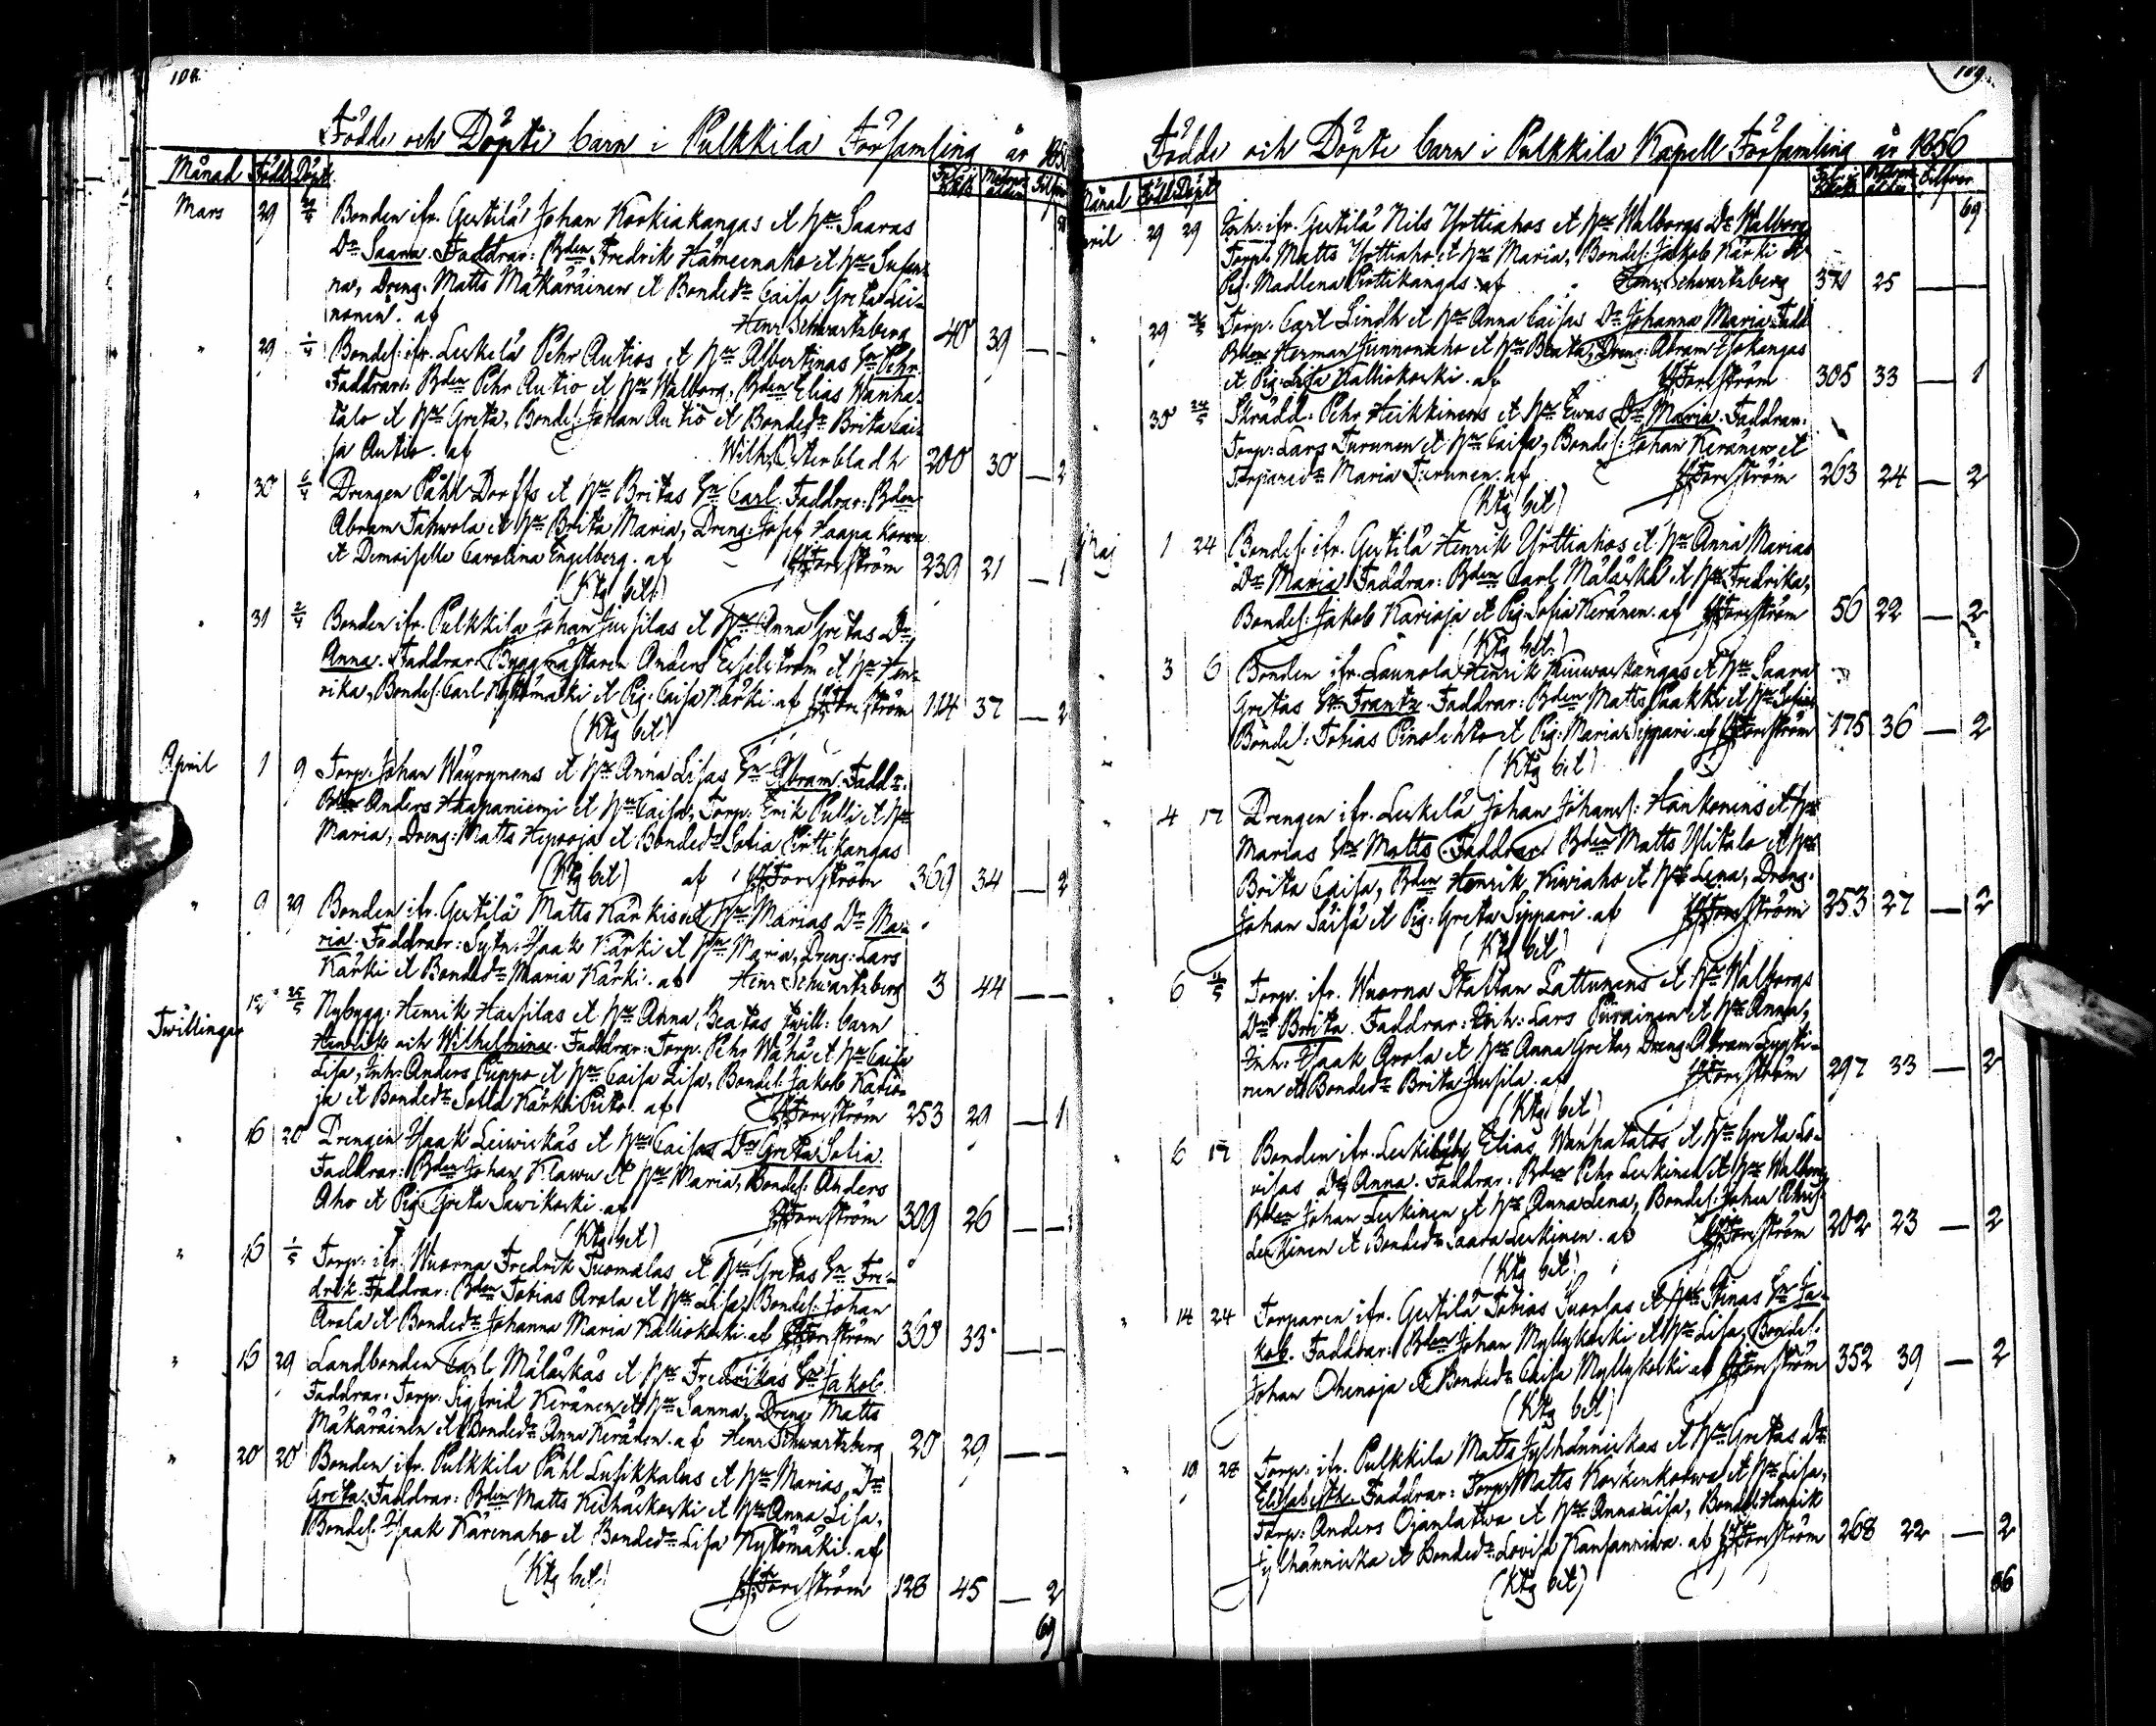 108.
Födde och Döpte barn i Pulkkila Församling år 1856
Månad Född Döpt
Mars 29 Bonden ifr. Gertilä Johan Korkiakangas et Hu Saaras
Dr Saara. Faddrar: Bden Fredrik Hämeenaho et Hu Susan-
na, Dreng. Matts Makäräinen et Bonded: Caisa Greta Lei-
nonen. af Henr. Schwartzberg 40 39 — —
29 1/4 Bondes: ifr. Leskelä Pehr Autios et Hu Albertinas Sn Pehr.
Faddrar: Bden Pehr Autio et Hu Walborg, Bden Elias Wanha-
talo et Hu Greta, Bondes: Johan Autio et Bonded: Brita Cai-
sa Autio. af Wilh. Österbladh 200 30 — 2
30 6/4 Drengen Påhl Dorffs et Hu Britas Sn Carl. Faddrar: Bden
Abram Tahwola et Hu Brita Maria, Dreng: Josef Haapakorwa
et Demoiselle Carolina Engelberg. af Forsström 239 21 — 1
(Ktg bet)
31 2/4 Bonden ifr. Pulkkila Johan Jussilas et Hu Anna Gretas Dr
Anna. Faddrar: Byggmästaren Anders Esselström et Hu Hen-
rika, Bondes: Carl Nystömäki et Pig: Caisa Kärki. af Forsström 114 37 — 2
(Ktg bet)
April 1 9 Torp. Johan Wäyrynens et Hu Anna Lisas Sn Abram. Faddr:
Bden Anders Haapaniemi et Hu Caisa, Torp: Erik Pulli et Hu
Maria, Dreng: Matts Hepooja et Bonded: Sofia Pirttikangas
(Ktg bet) af Forsström 369 34 — 2
9 29 Bonden ifr. Gertilä Matts Kärkis et Hu Marias Dr Ma-
ria. Faddrar: Sytn: Isaak Kärki et Hu Maria, Dreng: Lars
Kärki et Bonded: Maria Kärki. af Henr Schwartzberg 3 44 — —
Twillingar 12 25/5 Nybygg: Henrik Hassilas et Hu Anna Beatas twill: barn
Henrik och Wilhelmina. Faddrar: Torp. Pehr Wähä et Hu Caisa
Lisa, Inh: Anders Puppo et Hu Caisa Lisa, Bondes: Jakob Kario-
ja et Bonded: Sofia Kärki Piito. af Forsström 253 29 — 1
16 20 Drengen Isaak Leiwiskäs et Hu Caisas Dr Greta Sofia.
Faddrar: Bden Johan Klawu et Hu Maria, Bondes: Anders
Aho et Pig: Greta Sawikoski. af Forsström 309 26 — —
(Ktg bet)
16 1/5 Torp: ifr. Wuorna Fredrik Tuomalas et Hu Gretas Sn Fre-
drik. Faddrar: Bden Tobias Arola et Hu Lisa, Bondes: Johan
Arola et Bonded: Johanna Maria Kalliokoski. af Forsström 360 33 — —
16 29 Landbonden Carl Mäläskäs et Hu Fredrikas Sn Jakob.
Faddrar: Torp: Sigfrid Keränen et Hu Sanna, Dreng: Matts
Makäräinen et Bonded: Anna Keränen. af Henr Schwartzberg 20 29 — —
20 20 Bonden ifr. Pulkkila Påhl Lusikkalas et Hu Marias Dr
Greta. Faddrar: Bden Matts Keihäskoski et Hu Anna Lisa,
Bondes: Isaak Kärenaho et Bonded: Lisa Nystömäki. af
(Ktg bet) Forsström 128 45 — 2
69
109.
Födde och Döpte barn i Pulkkila Kapell Församling år 1856
Månad Född Döpt
69
April 29 29 Inh: ifr. Gertilä Nils Yrttiahos et Hu Walborgs Dr Walborg
Torp: Matts Yrttiaho et Hu Maria, Bondes: Jakob Kärki et
Pig: Madlena Pirttikangas af Henr. Schwartzberg 370 25 — —
29 Torp: Carl Lindh et Hu Anna Caisas Dr Johanna Maria. Fadd
Bden Herman Junnonaho et Hu Beata, Dreng: Abram Isokangas
et Pig: Lisa Kalliokoski. af Forsström 305 33 — 1
30 24/5 Skrädd: Pehr Heikkinens et Hu Ewas Dr Maria. Faddrar:
Torp: Lars Turunen et Hu Caisa, Bondes: Johan Keränen et
Torpared: Maria Turunen. af Forsström 263 24 — 2
(Ktg bet)
Maj 1 24 Bondes: ifr. Gertilä Henrik Yrttiahos et Hu Anna Marias
Dr Maria. Faddrar: Bden Carl Mäläskä et Hu Fredrika,
Bondes: Jakob Karioja et Pig: Sofia Keränen. af Forsström 56 22 — 2
(Ktg bet)
3 6 Bonden ifr. Launola Henrik Kiuwaskangas et Hu Saara
Gretas Sn Frantz. Faddrar: Bden Matts Paakki et Hu Sofia,
Bondes: Tobias Pinolehto et Pig: Maria Sippari. af Forsström 175 36 — 2
(Ktg bet)
4 17 Drengen ifr. Leskelä Johan Johans: Hankonens et Hu
Marias Sn Matts. Faddrar: Bden Matts Ylitalo et Hu
Brita Caisa, Bden Henrik Kiwiaho et Hu Lena, Dreng.
Johan Säisä et Pig: Greta Sippari. af Forsström 253 27 — 2
(Ktg bet)
6 11/5 Torp. ifr. Wuorna Staffan Lattunens et Hu Walborgs
Dr Brita. Faddrar: Inh: Lars Piirainen et Hu Anna,
Inh: Isaak Arola et Hu Anna Greta, Dreng: Abram
nen et Bonded: Brita Jussila. af Forsström 297 33 — 2
(Ktg bet)
6 17 Bonden ifr. Leskelä by Elias Wanhatalos et Hu Greta Lo-
visas Dr Anna. Faddrar: Bden Pehr Leskinen et Hu Walborg
Bden Johan Leskinen et Hu Anna Lena, Bondes: Johan
Leskinen et Bonded: Saara Leskinen. af Forsström 202 23 — 2
(Ktg bet)
14 24 Torparen ifr. Gertilä Tobias Suorlas et Hu Stinas Sn Ja-
kob. Faddrar: Bden Johan Myllykoski et Hu Lisa, Bondes:
Johan Ohenoja et Bonded: Caisa Myllykoski af Forsström 352 39 — 2
(Ktg bet)
19 28 Torp: ifr. Pulkkila Matts Jylhänniskas et Hu Gretas Dr
Elisabeth. Faddrar: Torp: Matts Koskenkorwa et Hu Lisa,
Torp: Anders Ojanlatwa et Hu Anna Lisa, Bondes: Henrik
Jylhänniska et Bonded: Lovisa Kansanniwa. af Forsström 268 22 — 2
(Ktg bet)
86